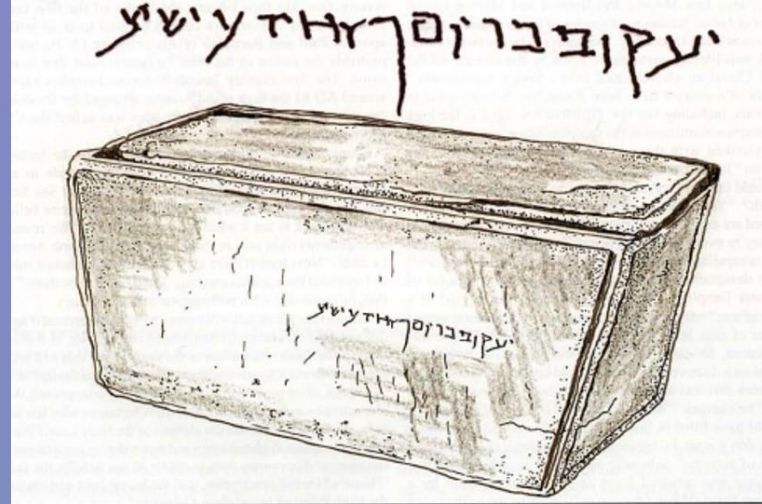 יעקובבריוסףאחוידישוע
יעקובבריוסףאחוידישוע